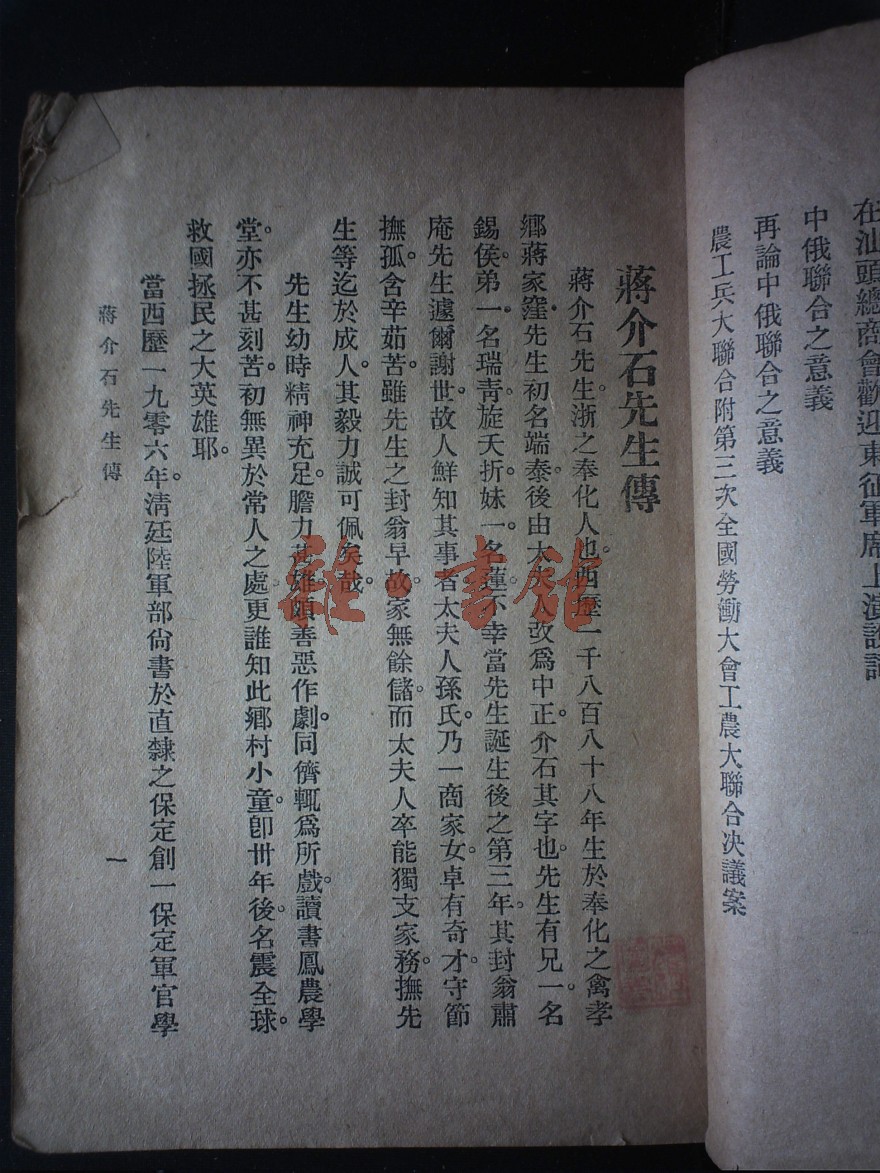 在汕頭總商會歡迎東征軍席上演說詞
中俄聯合之意義
再論中俄聯合之意義
農工兵大聯合附第三次全國勞働大會工農大聯合決議案
蔣介石先生傳
蔣介石先生。浙之奉化人也。西歷一千八百八十八年生於奉化之禽孝
鄉蔣家窪。先生初名端泰。後由太夫人改爲中正。介石其字也。先生有兄一。名
錫侯。弟一。名瑞青。旋夭折。妹一。名蓮。不幸當先生誕生後之第三年。其封翁肅
庵先生遽爾謝世。故人鮮知其事者。太夫人孫氏。乃一商家女。卓有奇才。守節
撫孤。含辛茹苦。雖先生之封翁早故。家無餘儲。而太夫人卒能獨支家務。撫先
生等迄於成人。其毅力誠可佩矣哉。
先生幼時精神充足。膽力甚雄。頗善惡作劇。同儕輒爲所戲。讀書鳳農學
堂。亦不甚刻苦。初無異於常人之處。更誰知此鄉村小童。卽卅年後。名震全球。
救國拯民之大英雄耶。
當西歷一九零六年。淸廷陸軍部尙書於直隸之保定創一保定軍官學
蔣介石先生傳
一